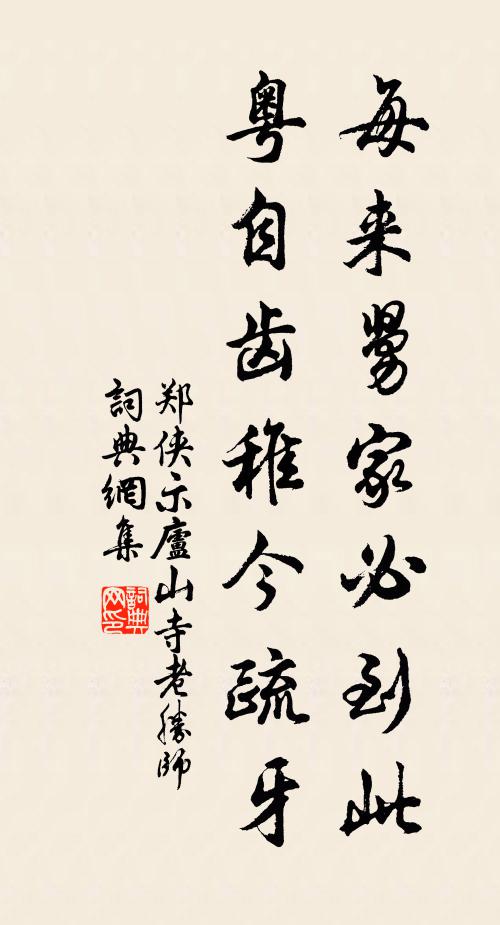 每来舅家必到此
粤自齿稚今疏牙
郑侠示廬山寺老勝師
詞典網集
詞典网印